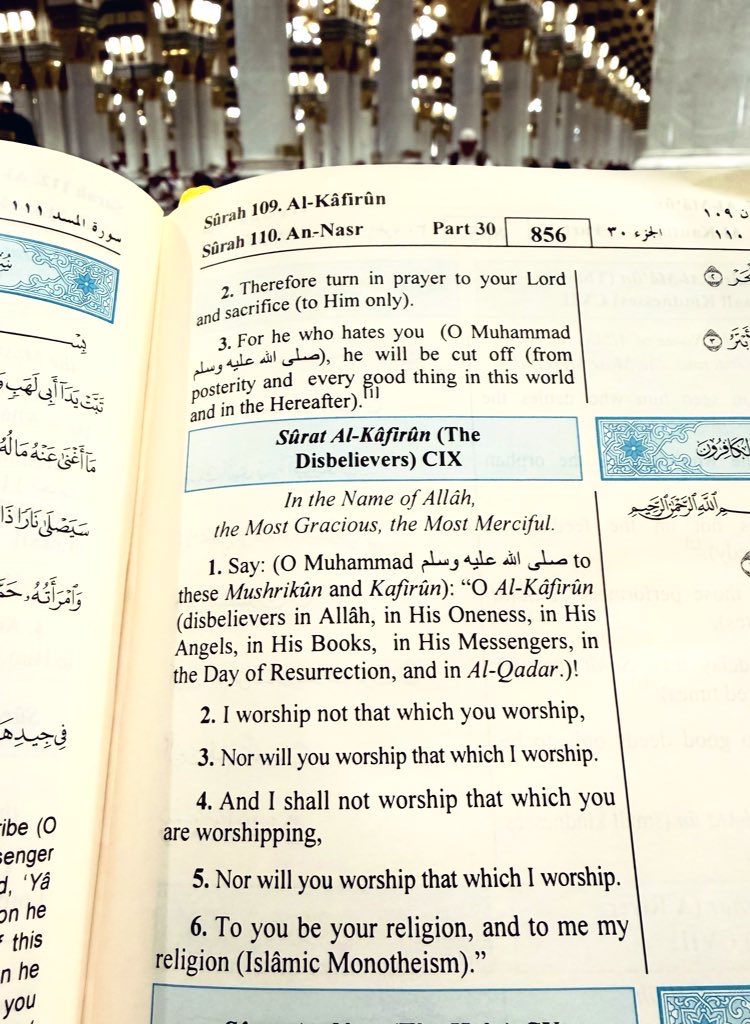 سورة المسد ١١١
تَبَّتْ يَدَآ أَبِى لَهَبٍ
مَآ أَغْنَىٰ عَنْهُ مَالُهُ
سَيَصْلَىٰ نَارًا ذَا
وَٱمْرَأَتُهُۥ
فِى جِيدِهَا
ribe (O
senger
d, ‘Yâ
on he
f this
n he
you
Sûrah 109. Al-Kâfirûn
Sûrah 110. An-Nasr Part 30 856 الجزء ٣٠
2. Therefore turn in prayer to your Lord
and sacrifice (to Him only).
3. For he who hates you (O Muhammad
صلى الله عليه وسلم), he will be cut off (from
posterity and every good thing in this world
and in the Hereafter).[1]
Sûrat Al-Kâfirûn (The
Disbelievers) CIX
In the Name of Allâh,
the Most Gracious, the Most Merciful.
1. Say: (O Muhammad صلى الله عليه وسلم to
these Mushrikûn and Kafirûn): “O Al-Kâfirûn
(disbelievers in Allâh, in His Oneness, in His
Angels, in His Books, in His Messengers, in
the Day of Resurrection, and in Al-Qadar.)!
2. I worship not that which you worship,
3. Nor will you worship that which I worship.
4. And I shall not worship that which you
are worshipping,
5. Nor will you worship that which I worship.
6. To you be your religion, and to me my
religion (Islâmic Monotheism).”
١٠٩
١١٠
٢
٣
الكافرون
بسم الله الرحمن الرحيم